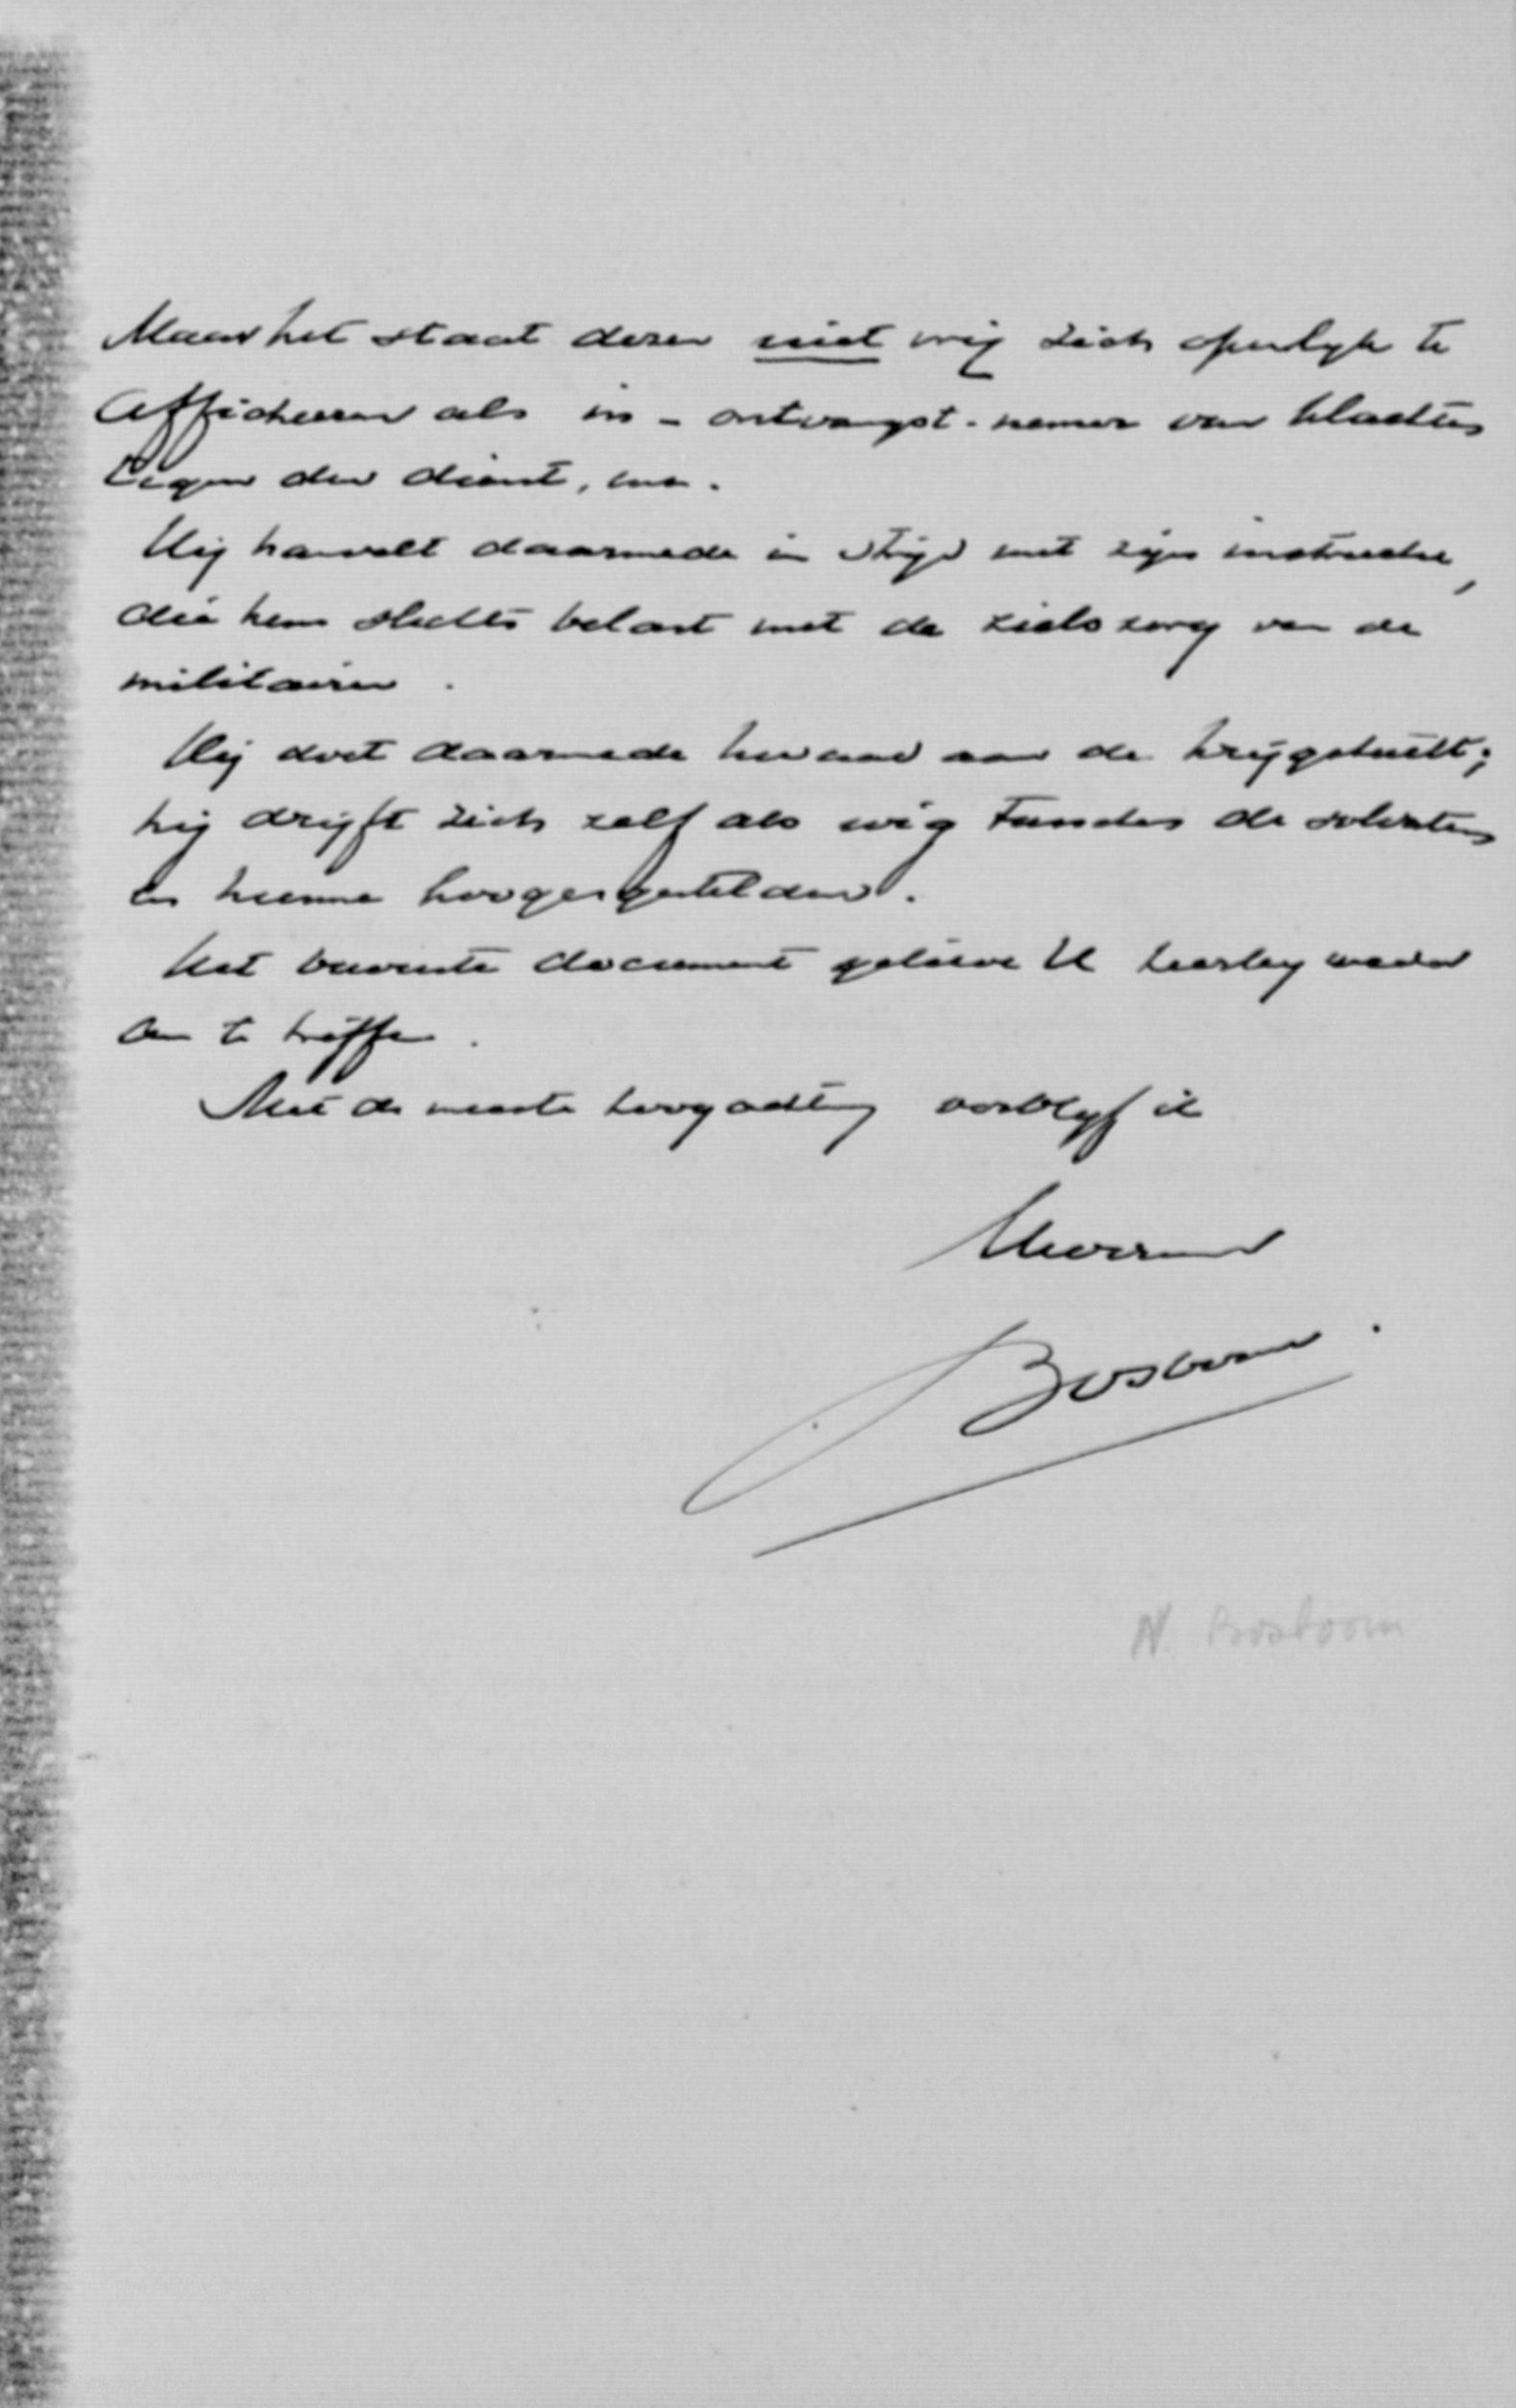 Maar het staat dezen niet vrij zich openlijk te
afficheeren als in-ontvangst-nemer van klachten
tegen den dienst, enz.
Hij handelt daarmede in strijd met zijn instructie,
die hem slechts belast met de zielszorg van de
militairen.
Hij doet daarmede kwaad aan de krijgstucht;
hij drijft zich zelf als wig tusschen de soldaten
en hunne hoogergestelden.
Het bewuste document gelieve U hierbij weder
aan te treffen.
Met de meeste hoogachting verblijf ik
Bosboom.
N. Bosboom